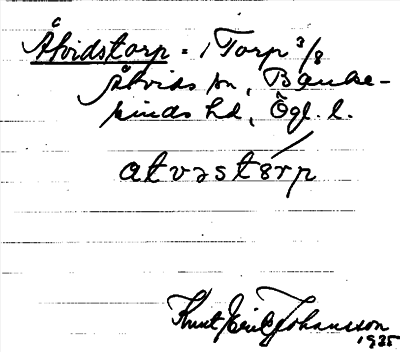 Åtvidstorp = 1 Torp 3/8
Åtvids sn, Banke-
kinds hd, Ögl. l.
atvəstörp
Knut Erik Johansson
1935